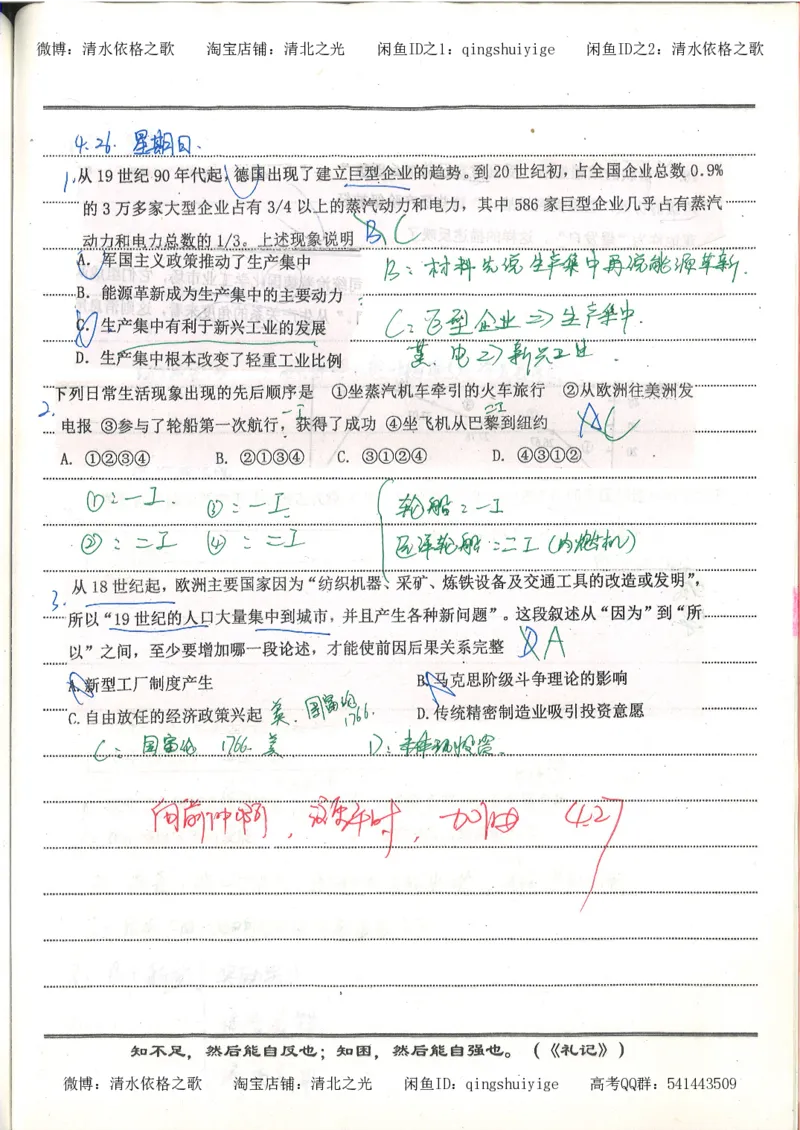 微博：清水依格之歌 淘宝店铺：清北之光 闲鱼ID之1：qingshuiyige 闲鱼ID之2：清水依格之歌
4.26. 星期日.
1.从19世纪90年代起，德国出现了建立巨型企业的趋势。到20世纪初，占全国企业总数0.9%
的3万多家大型企业占有3/4以上的蒸汽动力和电力，其中586家巨型企业几乎占有蒸汽
动力和电力总数的1/3。上述现象说明 B C
A. 军国主义政策推动了生产集中
B：材料先说生产集中再说能源革新.
B. 能源革新成为生产集中的主要动力
C. 生产集中有利于新兴工业的发展
C：巨型企业⇒生产集中.
蒸、电⇒新兴工业.
D. 生产集中根本改变了轻重工业比例
2.下列日常生活现象出现的先后顺序是 ①坐蒸汽机车牵引的火车旅行 ②从欧洲往美洲发
电报 ③参与了轮船第一次航行，获得了成功 ④坐飞机从巴黎到纽约 A C
一工 二工
A. ①②③④ B. ②①③④ C. ③①②④ D. ④③①②
①：一工. ③：一工. 轮船：一工
②：二工 ④：二工 远洋轮船：二工（内燃机）
3.从18世纪起，欧洲主要国家因为“纺织机器、采矿、炼铁设备及交通工具的改造或发明”，
所以“19世纪的人口大量集中到城市，并且产生各种新问题”。这段叙述从“因为”到“所
以”之间，至少要增加哪一段论述，才能使前因后果关系完整 D A
A.新型工厂制度产生 B.马克思阶级斗争理论的影响
C.自由放任的经济政策兴起 英. 国富论 1766. D.传统精密制造业吸引投资意愿
C：国富论 1766. 英 D：未体现投资.
向前冲啊，没事，加油 4.27
知不足，然后能自反也；知困，然后能自强也。（《礼记》）
微博：清水依格之歌 淘宝店铺：清北之光 闲鱼ID：qingshuiyige 高考QQ群：541443509